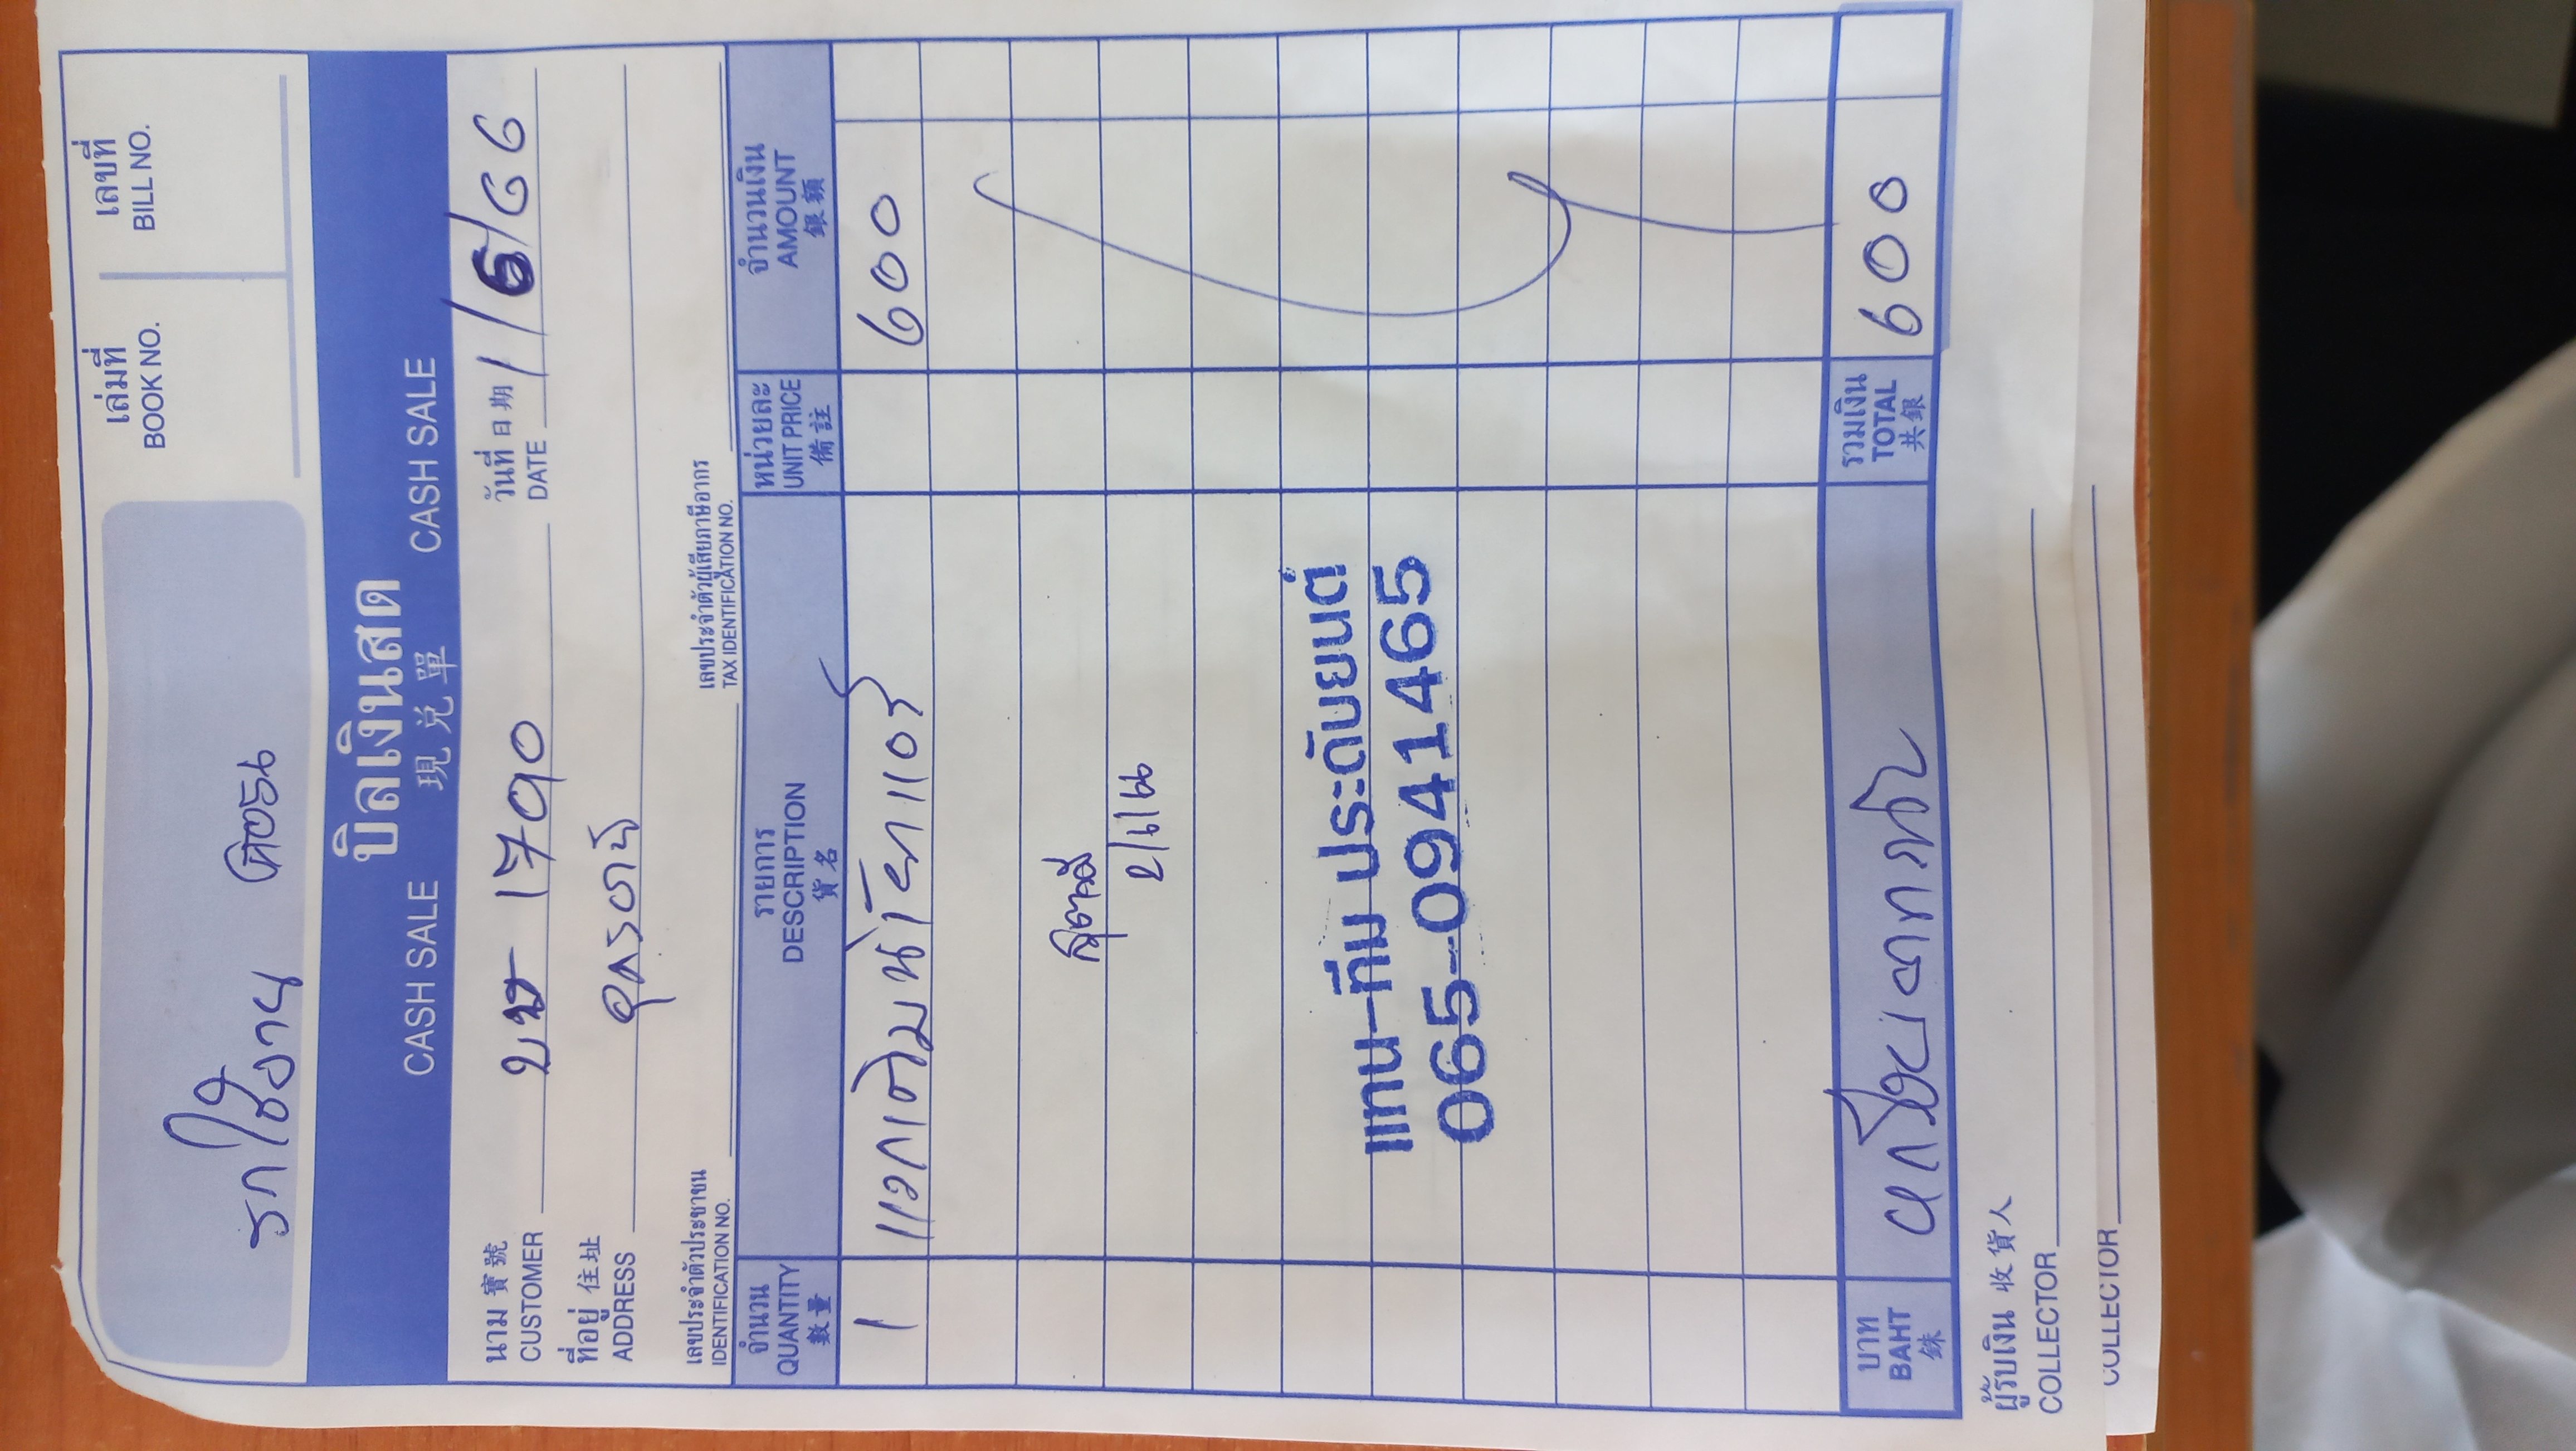 เล่มที่ เลขที่
BOOK NO. BILL NO.
รถใช้งาน
บิลเงินสด
CASH SALE 現兌單 CASH SALE
นาม 寳號 บษ 1790 วันที่ 日期 1/6/66
CUSTOMER DATE
ที่อยู่ 住址 อุดรธานี
ADDRESS
เลขประจำตัวประชาชน เลขประจำตัวผู้เสียภาษีอากร
IDENTIFICATION NO. TAX IDENTIFICATION NO.
จำนวน รายการ หน่วยละ จำนวนเงิน
QUANTITY DESCRIPTION UNIT PRICE AMOUNT
數量 貨名 備註 銀額
1 600
แทน-ทีม ประดับยนต์
065-0941465
บาท รวมเงิน
BAHT หกร้อยบาทถ้วน TOTAL 600
銖 共銀
ผู้รับเงิน 收貨人
COLLECTOR
COLLECTOR